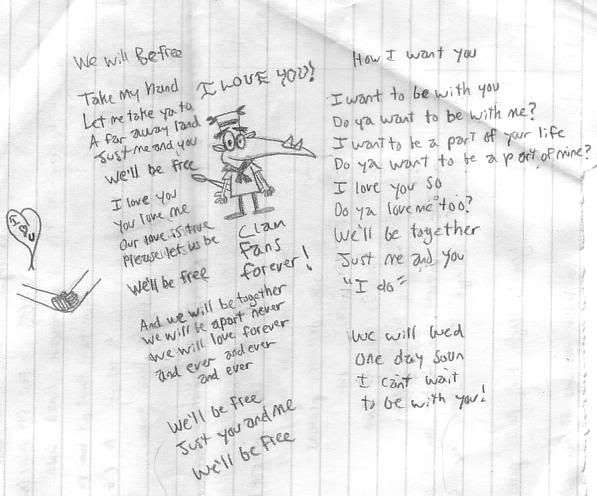 We will Be free
Take my hand
Let me take ya to
A far away land
Just me and you
We'll be free
I love you
You love me
Our love is true
Please let us be
We'll be free
And we will be together
We will be apart never
We will love forever
and ever and ever
and ever
We'll be free
Just you and me
We'll be free
I LOVE YOU!
Clam
Fans
forever!
I ♥ U
How I want you
I want to be with you
Do ya want to be with me?
I want to be a part of your life
Do ya want to be a part of mine?
I love you so
Do ya love me too?
We'll be together
Just me and you
"I do"
We will wed
One day soun
I can't wait
to be with you!